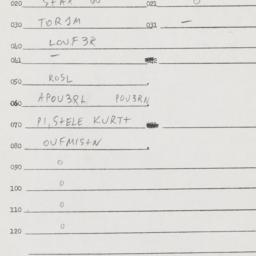 020 021 0
030 TORIM 031 —
040 LOUF3R
041 —
050 ROSL
060 APOU3RL POU3RN
070 PI,StELE KURTt
080 OUFMIStN
090 0
100 0
110 0
120 0